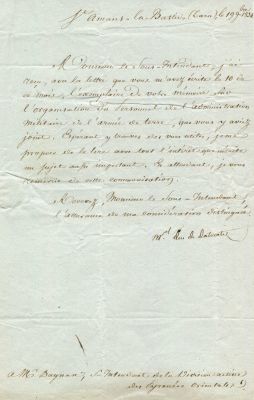 St Amans-la-Bastide, (Tarn) le 19 9bre 1834
Monsieur le Sous-Intendant, j'ai
reçu, avec la lettre que vous m'avez écrite le 10 de
ce mois, l'exemplaire de votre mémoire sur
l'organisation du personnel de l'administration
militaire de l'armée de terre, que vous y avez
joint. Espérant y trouver des vues utiles, je me
propose de le lire avec tout l'intérêt que mérite
un sujet aussi important. En attendant, je vous
remercie de cette communication.
Recevez, Monsieur le Sous-Intendant,
l'assurance de ma considération distinguée.
Mal Duc de Dalmatie
A Mr Baynan, S. Intendant de la Division active
des Pyrénées Orientales